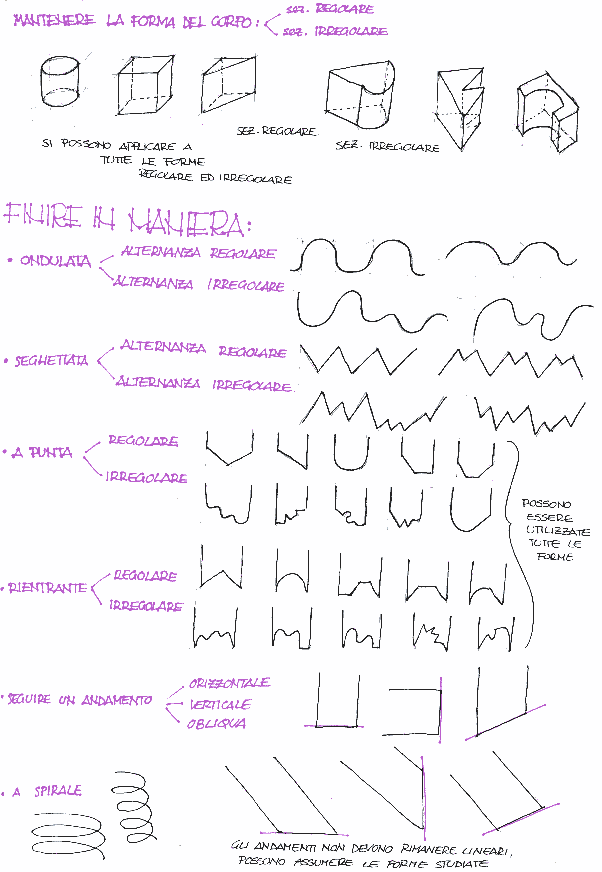 MANTENERE LA FORMA DEL CORPO:
SEZ. REGOLARE
SEZ. IRREGOLARE
SI POSSONO APPLICARE A
TUTTE LE FORME
REGOLARE ED IRREGOLARE
SEZ. REGOLARE
SEZ. IRREGOLARE
FINIRE IN MANIERA:
• ONDULATA
ALTERNANZA REGOLARE
ALTERNANZA IRREGOLARE
• SEGHETTATA
ALTERNANZA REGOLARE
ALTERNANZA IRREGOLARE
• A PUNTA
REGOLARE
IRREGOLARE
POSSONO
ESSERE
UTILIZZATE
TUTTE LE
FORME
• RIENTRANTE
REGOLARE
IRREGOLARE
• SEGUIRE UN ANDAMENTO
ORIZZONTALE
VERTICALE
OBLIQUA
• A SPIRALE
GLI ANDAMENTI NON DEVONO RIMANERE LINEARI,
POSSONO ASSUMERE LE FORME STUDIATE